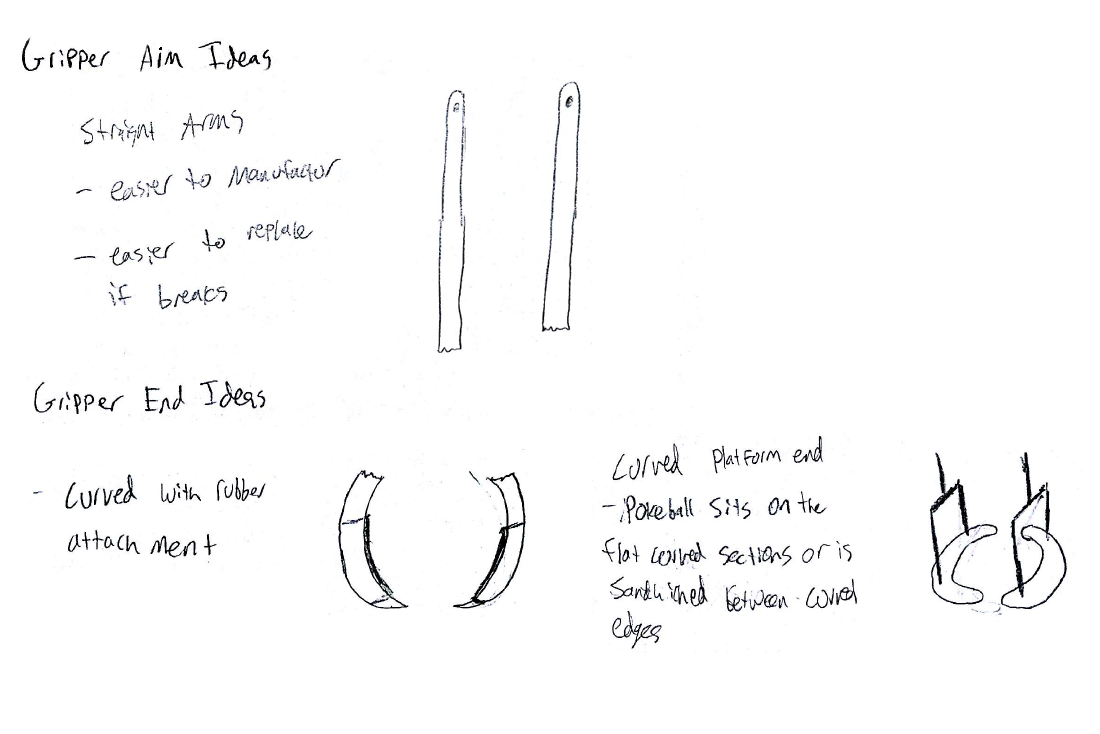 Gripper Arm Ideas
Straight Arms
- easier to Manufactor
- easier to replace
if breaks
Gripper End Ideas
- Curved with rubber
attachment
Curved Platform end
- Pokeball sits on the
flat curved sections or is
Sandwiched between curved
edges